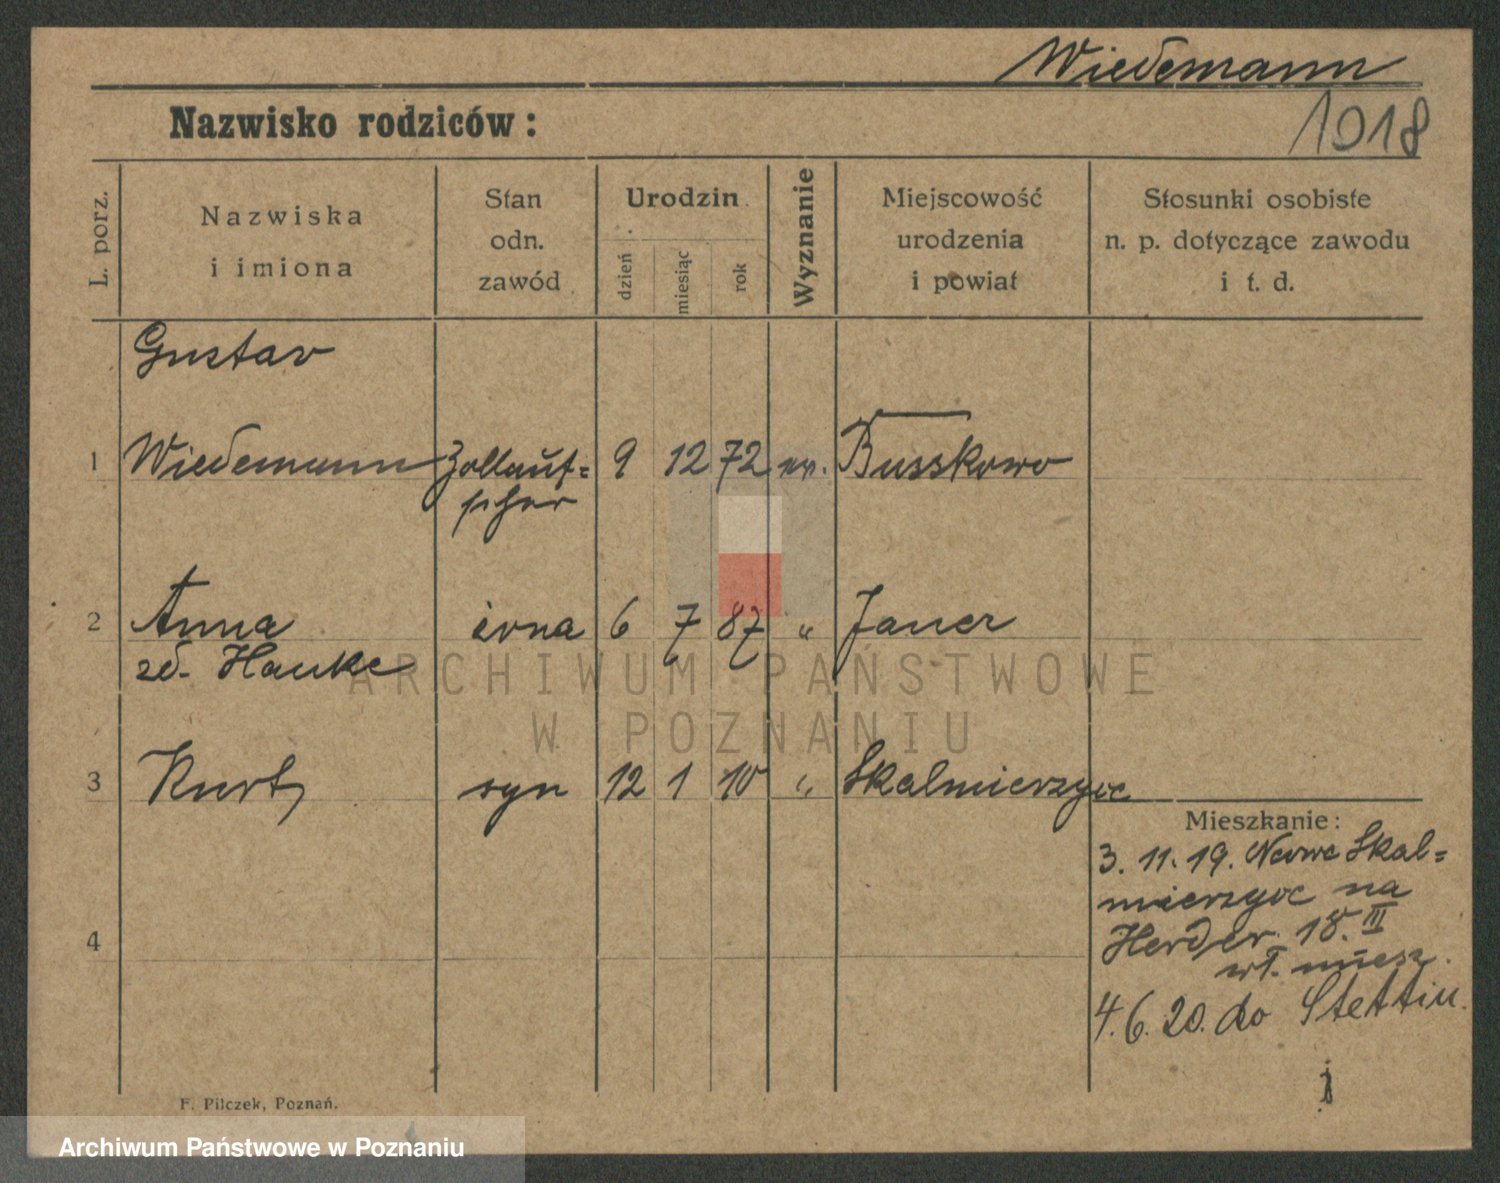 Wiedemann
Nazwisko rodziców:
1918
L. porz.
Nazwiska
i imiona
Stan
odn.
zawód
Urodzin
dzień
miesiąc
rok
Wyznanie
Miejscowość
urodzenia
i powiat
Stosunki osobiste
n. p. dotyczące zawodu
i t. d.
Gustav
1 Wiedemann Zollauf= 9 12 72 ew. Busskowo
2 Anna żona 6 7 87 " Jauer
zd. Hauke
3 Kurt syn 12 1 10 " Skalmierzyce
Mieszkanie:
3. 11. 19. Nowe Skal=
mierzyce na
Herder. 18. III
wł. miesz.
4
4. 6. 20. do Stettin.
F. Pilczek, Poznań.
ARCHIWUM PAŃSTWOWE
W POZNANIU
Archiwum Państwowe w Poznaniu